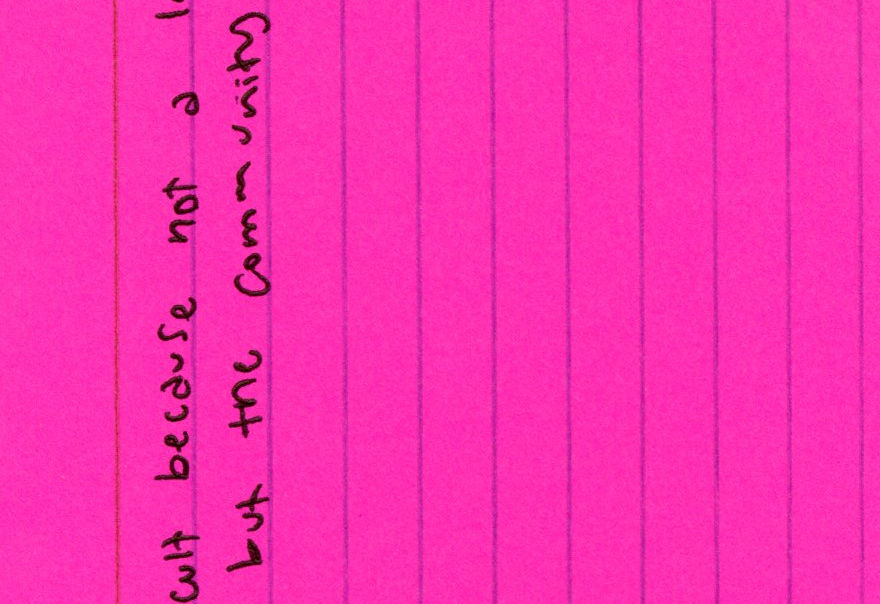 cult because not a
but the community